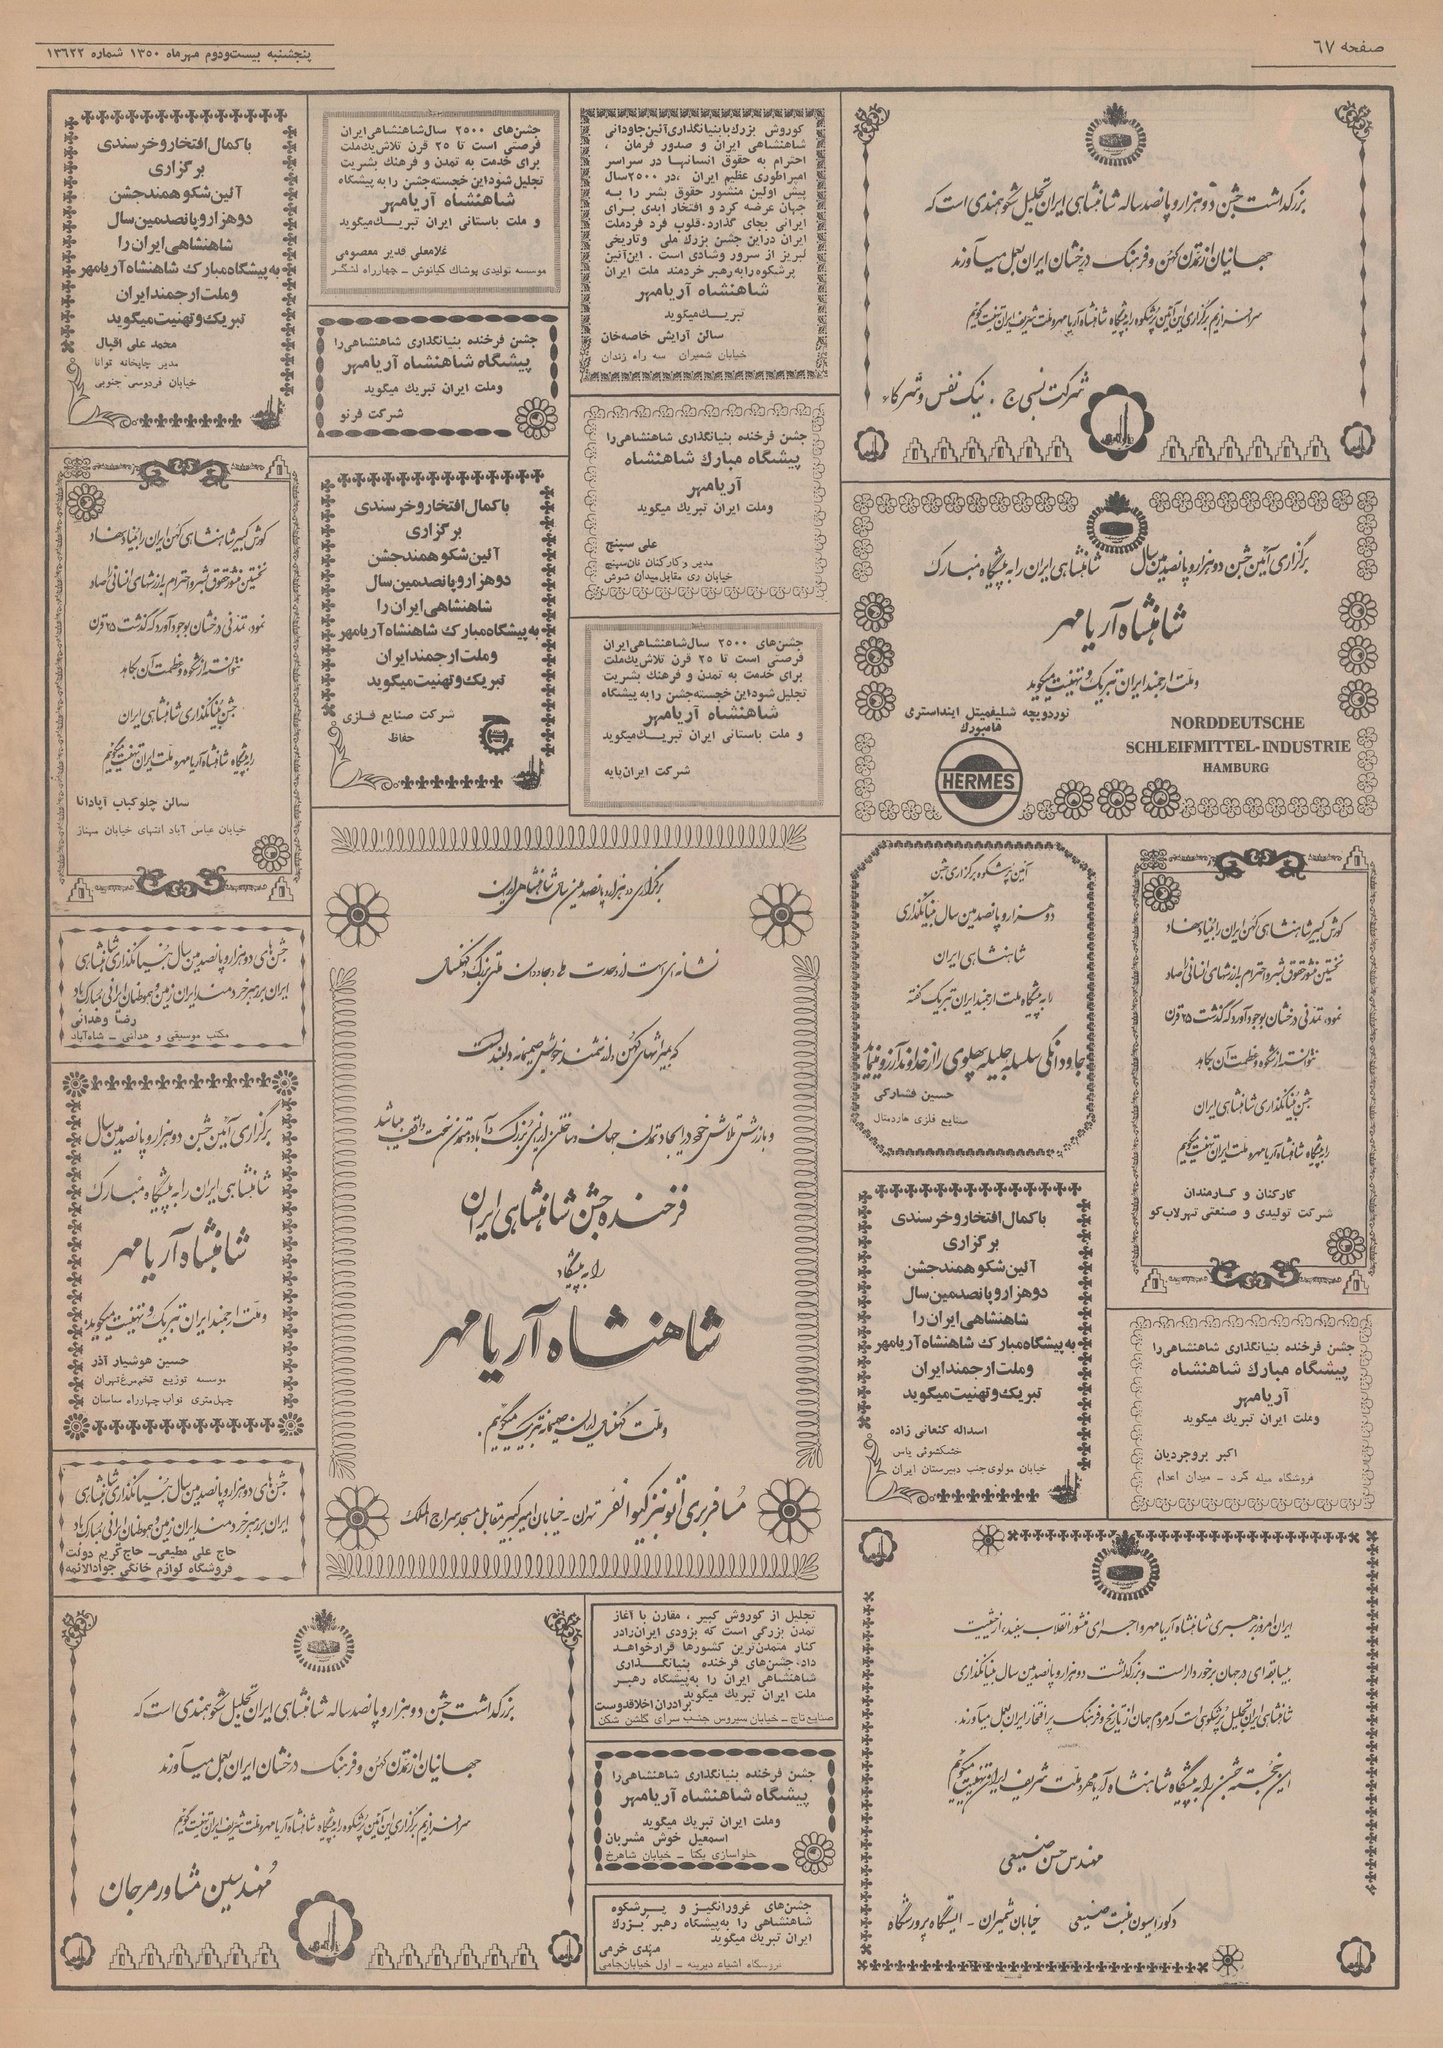 صفحه ٦٧
پنجشنبه بیست‌ودوم مهرماه ١٣٥٠ شماره ١٣٦٢٢
بزرگداشت جشن دوهزار و پانصد ساله شاهنشاهی ایران تجلیل شکوهمندی است که
جهانیان از تمدن کهن و فرهنگ درخشان ایران بعمل میآورند
سرافرازیم برگزاری این آئین پرشکوه را به پیشگاه شاهنشاه آریامهر و ملت شریف ایران تهنیت گوئیم
شرکت نسبی ج . نیک نفس و شرکاء
کوروش بزرگ با بنیانگذاری آئین جاودانی
شاهنشاهی ایران و صدور فرمان ،
احترام به حقوق انسانها در سراسر
امپراطوری عظیم ایران ،در ۲۵۰۰سال
پیش اولین منشور حقوق بشر را به
جهان عرضه کرد و افتخار ابدی برای
ایرانی بجای گذارد.قلوب فرد فردملت
ایران دراین جشن بزرگ ملی وتاریخی
لبریز از سرور وشادی است . این‌آئین
پرشکوه‌رابه‌رهبر خردمند ملت ایران
شاهنشاه آریامهر
تبریک میگوید
سالن آرایش خاصه‌خان
خیابان شمیران سه راه زندان
جشن‌های ۲۵۰۰ سال‌شاهنشاهی‌ایران
فرصتی است تا ۲۵ قرن تلاش‌یک‌ملت
برای خدمت به تمدن و فرهنگ بشریت
تجلیل شوداین خجسته‌جشن را به پیشگاه
شاهنشاه آریامهر
و ملت باستانی ایران تبریک‌میگوید
غلامعلی قدیر معصومی
موسسه تولیدی پوشاك كیانوش – چهارراه لشگر
باکمال افتخار و خرسندی
برگزاری
آئین شکوهمند جشن
دوهزار و پانصدمین سال
شاهنشاهی ایران را
به پیشگاه مبارک شاهنشاه آریامهر
وملت ارجمند ایران
تبریک و تهنیت میگوید
محمد علی اقبال
مدیر چاپخانه توانا
خیابان فردوسی جنوبی
جشن فرخنده بنیانگذاری شاهنشاهی‌را
پیشگاه شاهنشاه آریامهر
وملت ایران تبریك میگوید
شرکت فرنو
جشن فرخنده بنیانگذاری شاهنشاهی‌را
پیشگاه مبارك شاهنشاه
آریامهر
وملت ایران تبریك میگوید
علی سپنج
مدیر و کارکنان نان‌سپنج
خیابان ری مقابل‌میدان شوش
باکمال افتخار و خرسندی
برگزاری
آئین شکوهمند جشن
دوهزار و پانصدمین سال
شاهنشاهی ایران را
به پیشگاه مبارک شاهنشاه آریامهر
وملت ارجمند ایران
تبریک و تهنیت میگوید
شرکت صنایع فلزی
حفاظ
کورش کبیر شاهنشاهی کهن ایران را بنیاد نهاد
نخستین منشور حقوق بشر و احترام به ارزشهای انسانی را صادر
نمود، تمدنی درخشان بوجود آورد که گذشت ۲۵ قرن
نتوانسته از شکوه و عظمت آن بکاهد
جشن بنیانگذاری شاهنشاهی ایران
را به پیشگاه شاهنشاه آریامهر و ملت ایران تهنیت میگوئیم
سالن چلوکباب آپادانا
خیابان عباس آباد انتهای خیابان مهناز
برگزاری آئین جشن دوهزار و پانصدمین سال شاهنشاهی ایران را به پیشگاه مبارک
شاهنشاه آریامهر
و ملت ارجمند ایران تبریک و تهنیت میگوید
نوردویچه شلیفمیتل اینداستری
هامبورك
NORDDEUTSCHE
SCHLEIFMITTEL-INDUSTRIE
HAMBURG
HERMES
جشن‌های ۲۵۰۰ سال‌شاهنشاهی‌ایران
فرصتی است تا ۲۵ قرن تلاش‌یک‌ملت
برای خدمت به تمدن و فرهنگ بشریت
تجلیل شوداین خجسته‌جشن را به پیشگاه
شاهنشاه آریامهر
و ملت باستانی ایران تبریک‌میگوید
شرکت ایران‌پایه
برگزاری دوهزار و پانصدمین سال شاهنشاهی ایران
نشانه‌ای است از وحدت
فرخنده جشن شاهنشاهی ایران
را به پیشگاه
شاهنشاه آریامهر
و ملت کهنسال ایران صمیمانه تبریک میگوئیم.
مسافربری اتوبنز گیوانفر تهران - خیابان امیرکبیر مقابل مسجد سراج الملک
آئین پرشکوه برگزاری جشن
دوهزار و پانصدمین سال بنیانگذاری
شاهنشاهی ایران
را به پیشگاه ملت ارجمند ایران تبریک گفته
جاودانگی سلسله جلیله پهلوی را از خداوند آرزو مینماید
حسین فشارکی
صنایع فلزی هاردمتال
کورش کبیر شاهنشاهی کهن ایران را بنیاد نهاد
نخستین منشور حقوق بشر و احترام به ارزشهای انسانی را صادر
نمود، تمدنی درخشان بوجود آورد که گذشت ۲۵ قرن
نتوانسته از شکوه و عظمت آن بکاهد
جشن بنیانگذاری شاهنشاهی ایران
را به پیشگاه شاهنشاه آریامهر و ملت ایران تهنیت میگوئیم
کارکنان و کارمندان
شرکت تولیدی و صنعتی تهرلاب‌کو
جشن‌های دوهزار و پانصدمین سال بنیانگذاری شاهنشاهی
ایران بر رهبر خردمند ایران زمین و هموطنان ایرانی مبارک باد
رضا وهدانی
مکتب موسیقی و هدانی – شاه‌آباد
برگزاری آئین جشن دوهزار و پانصدمین سال
شاهنشاهی ایران را به پیشگاه مبارک
شاهنشاه آریامهر
و ملت ارجمند ایران تبریک و تهنیت میگوید.
حسین هوشیار آذر
موسسه توزیع تخم‌مرغ‌تهران
چهل‌متری نواب چهارراه ساسان
باکمال افتخار و خرسندی
برگزاری
آئین شکوهمند جشن
دوهزار و پانصدمین سال
شاهنشاهی ایران را
به پیشگاه مبارک شاهنشاه آریامهر
وملت ارجمند ایران
تبریک و تهنیت میگوید
اسداله کنعانی زاده
خشکشوئی یاس
خیابان مولوی‌جنب دبیرستان ایران
جشن فرخنده بنیانگذاری شاهنشاهی‌را
پیشگاه مبارك شاهنشاه
آریامهر
وملت ایران تبریك میگوید
اکبر بروجردیان
فروشگاه میله گرد – میدان اعدام
جشن‌های دوهزار و پانصدمین سال بنیانگذاری شاهنشاهی
ایران بر رهبر خردمند ایران زمین و هموطنان ایرانی مبارک باد
حاج علی مطیعی– حاج کریم دولت
فروشگاه لوازم خانگی جوادالائمه
ایران امروز برهبری شاهنشاه آریامهر و اجرای منشور انقلاب سفید، از حیثیت
بیسابقه‌ای در جهان برخوردار است و بزرگداشت دوهزار و پانصدمین سال بنیانگذاری
شاهنشاهی ایران تجلیل پرشکوهی است که مردم جهان از تاریخ و فرهنگ پر افتخار ایران بعمل میآورند.
این خجسته جشن را به پیشگاه شاهنشاه آریامهر و ملت شریف ایران تهنیت میگوئیم
مهندس حسن صنیعی
دکوراسیون منبت صنیعی خیابان شمیران - ایستگاه پرورشگاه
بزرگداشت جشن دوهزار و پانصد ساله شاهنشاهی ایران تجلیل شکوهمندی است که
جهانیان از تمدن کهن و فرهنگ درخشان ایران بعمل میآورند
سرافرازیم برگزاری این آئین پرشکوه را به پیشگاه شاهنشاه آریامهر و ملت شریف ایران تهنیت گوئیم
مهندسین مشاور مرجان
تجلیل از کوروش کبیر ، مقارن با آغاز
تمدن بزرگی است که بزودی ایران‌رادر
کنار متمدن‌ترین کشورها قرارخواهد
داد.جشن‌های فرخنده بنیانگذاری
شاهنشاهی ایران را به‌پیشگاه رهبر
ملت ایران تبریك میگوید
برادران اخلاقدوست
صنایع‌تاج – خیابان سیروس جنب سرای گلشن شکن
جشن فرخنده بنیانگذاری شاهنشاهی‌را
پیشگاه شاهنشاه آریامهر
وملت ایران تبریك میگوید
اسمعیل خوش مشربان
حلواسازی یکتا – خیابان شاهرخ
جشن‌های غرورانگیز و پرشکوه
شاهنشاهی را به‌پیشگاه رهبر بزرك
ایران تبریك میگوید
مهدی خرمی
فروشگاه اشیاء دیرینه – اول خیابان‌جامی